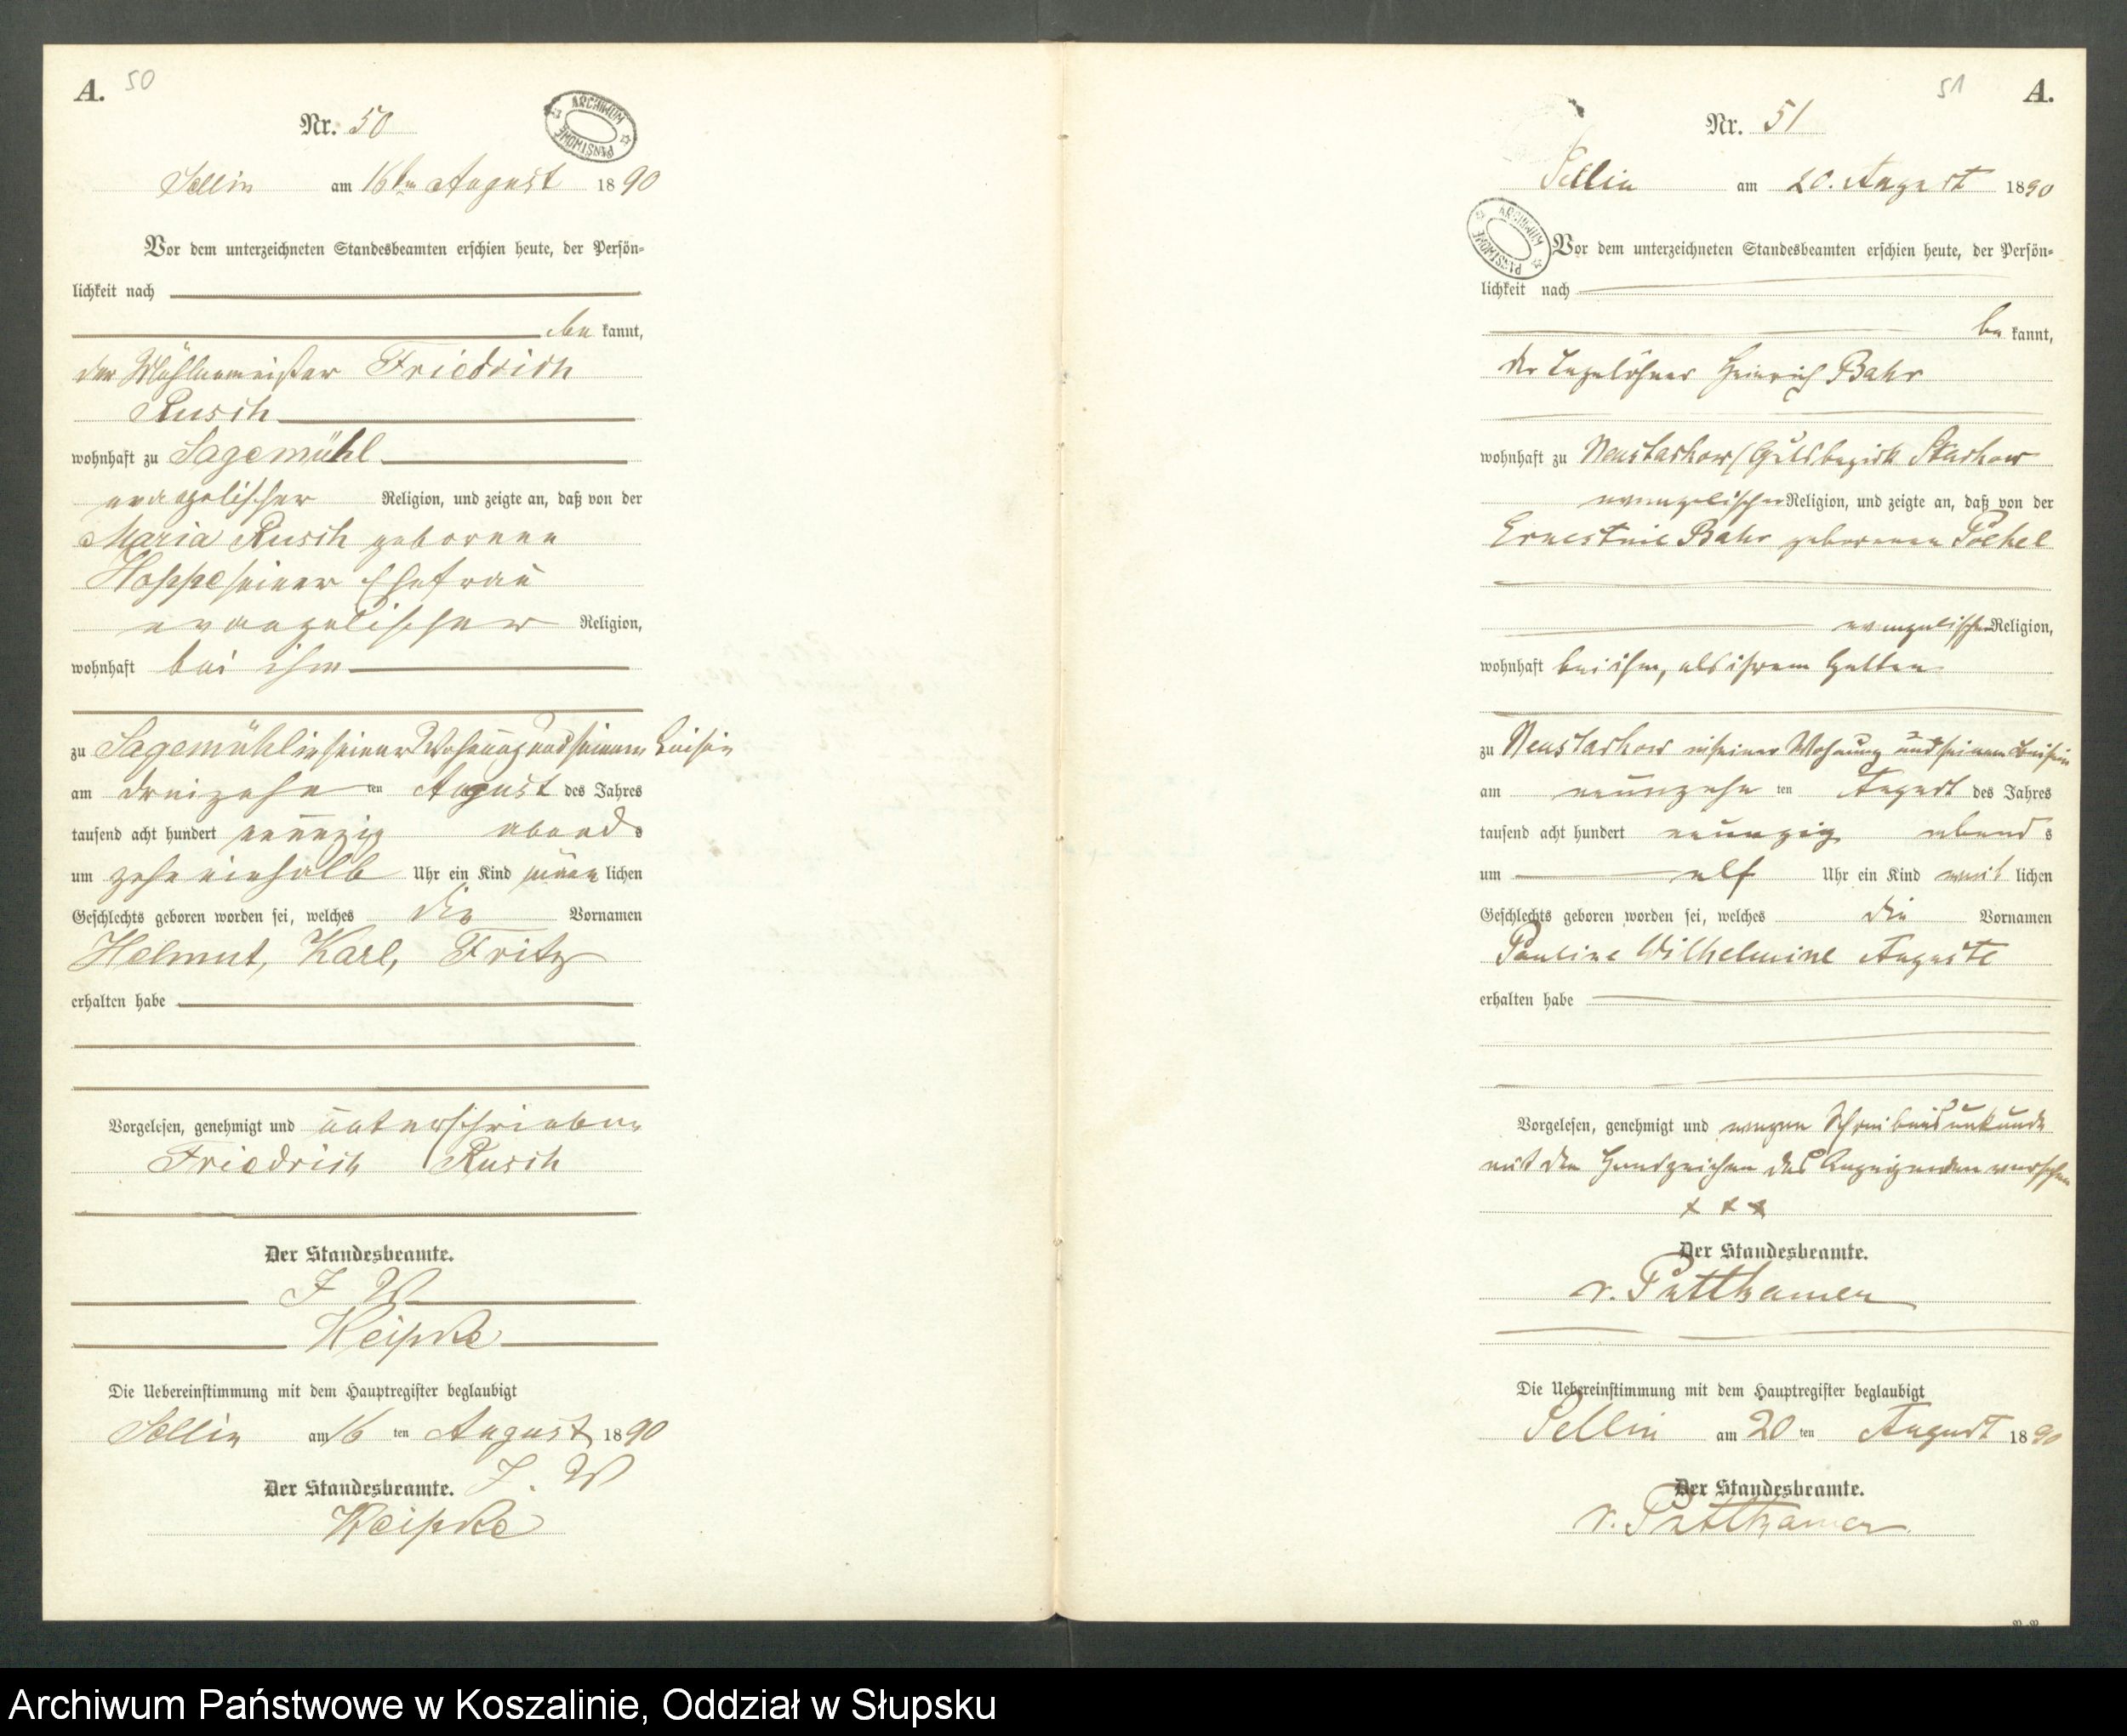 A. 50
ARCHIWUM PAŃSTWOWE
Nr. 50
Sellin am 16ten August 1890
Vor dem unterzeichneten Standesbeamten erschien heute, der Persön-
lichkeit nach
be kannt,
der Mühlenmeister Friedrich
Rusch
wohnhaft zu Sagemühl
evangelischer Religion, und zeigte an, daß von der
Maria Rusch geborenen
Hoppe seiner Ehefrau
evangelischer Religion,
wohnhaft bei ihm
zu Sagemühl in seiner Wohnung und seinem Beisein
am dreizehnten August des Jahres
tausend acht hundert neunzig abends
um zehn einhalb Uhr ein Kind männlichen
Geschlechts geboren worden sei, welches die Vornamen
Helmut, Karl, Fritz
erhalten habe
Vorgelesen, genehmigt und unterschrieben
Friedrich Rusch
Der Standesbeamte.
J W
Keipke
Die Uebereinstimmung mit dem Hauptregister beglaubigt
Sellin am 16 ten August 1890
Der Standesbeamte. J. W
Keipke
51 A.
Nr. 51
Sellin am 20. August 1890
ARCHIWUM PAŃSTWOWE
Vor dem unterzeichneten Standesbeamten erschien heute, der Persön-
lichkeit nach
be kannt,
der Tagelöhner Heinrich Bahr
wohnhaft zu Neustarkow/Gutsbezirk Starkow
evangelischer Religion, und zeigte an, daß von der
Ernestine Bahr geborenen
evangelischer Religion,
wohnhaft bei ihm, als ihrem Gatten
zu Neustarkow in seiner Wohnung und seinem Beisein
am neunzehnten August des Jahres
tausend acht hundert neunzig abends
um elf Uhr ein Kind weiblichen
Geschlechts geboren worden sei, welches die Vornamen
Pauline Wilhelmine Auguste
erhalten habe
Vorgelesen, genehmigt und wegen Schreibensunkunde
mit den Handzeichen des Anzeigenden versehen
+ + +
Der Standesbeamte.
v. Puttkamer
Die Uebereinstimmung mit dem Hauptregister beglaubigt
Sellin am 20 ten August 1890
Der Standesbeamte.
v. Puttkamer
Archiwum Państwowe w Koszalinie, Oddział w Słupsku